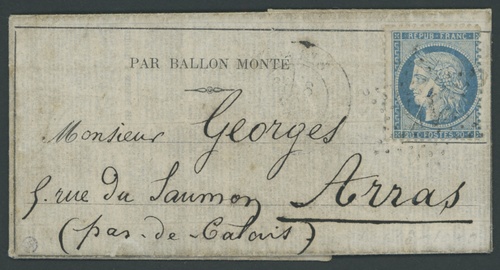 REPUB. FRANC.
PAR BALLON MONTÉ
20 C. POSTES 20 C.
Monsieur Georges
5. rue du Saumon Arras
(pas-de-Calais)